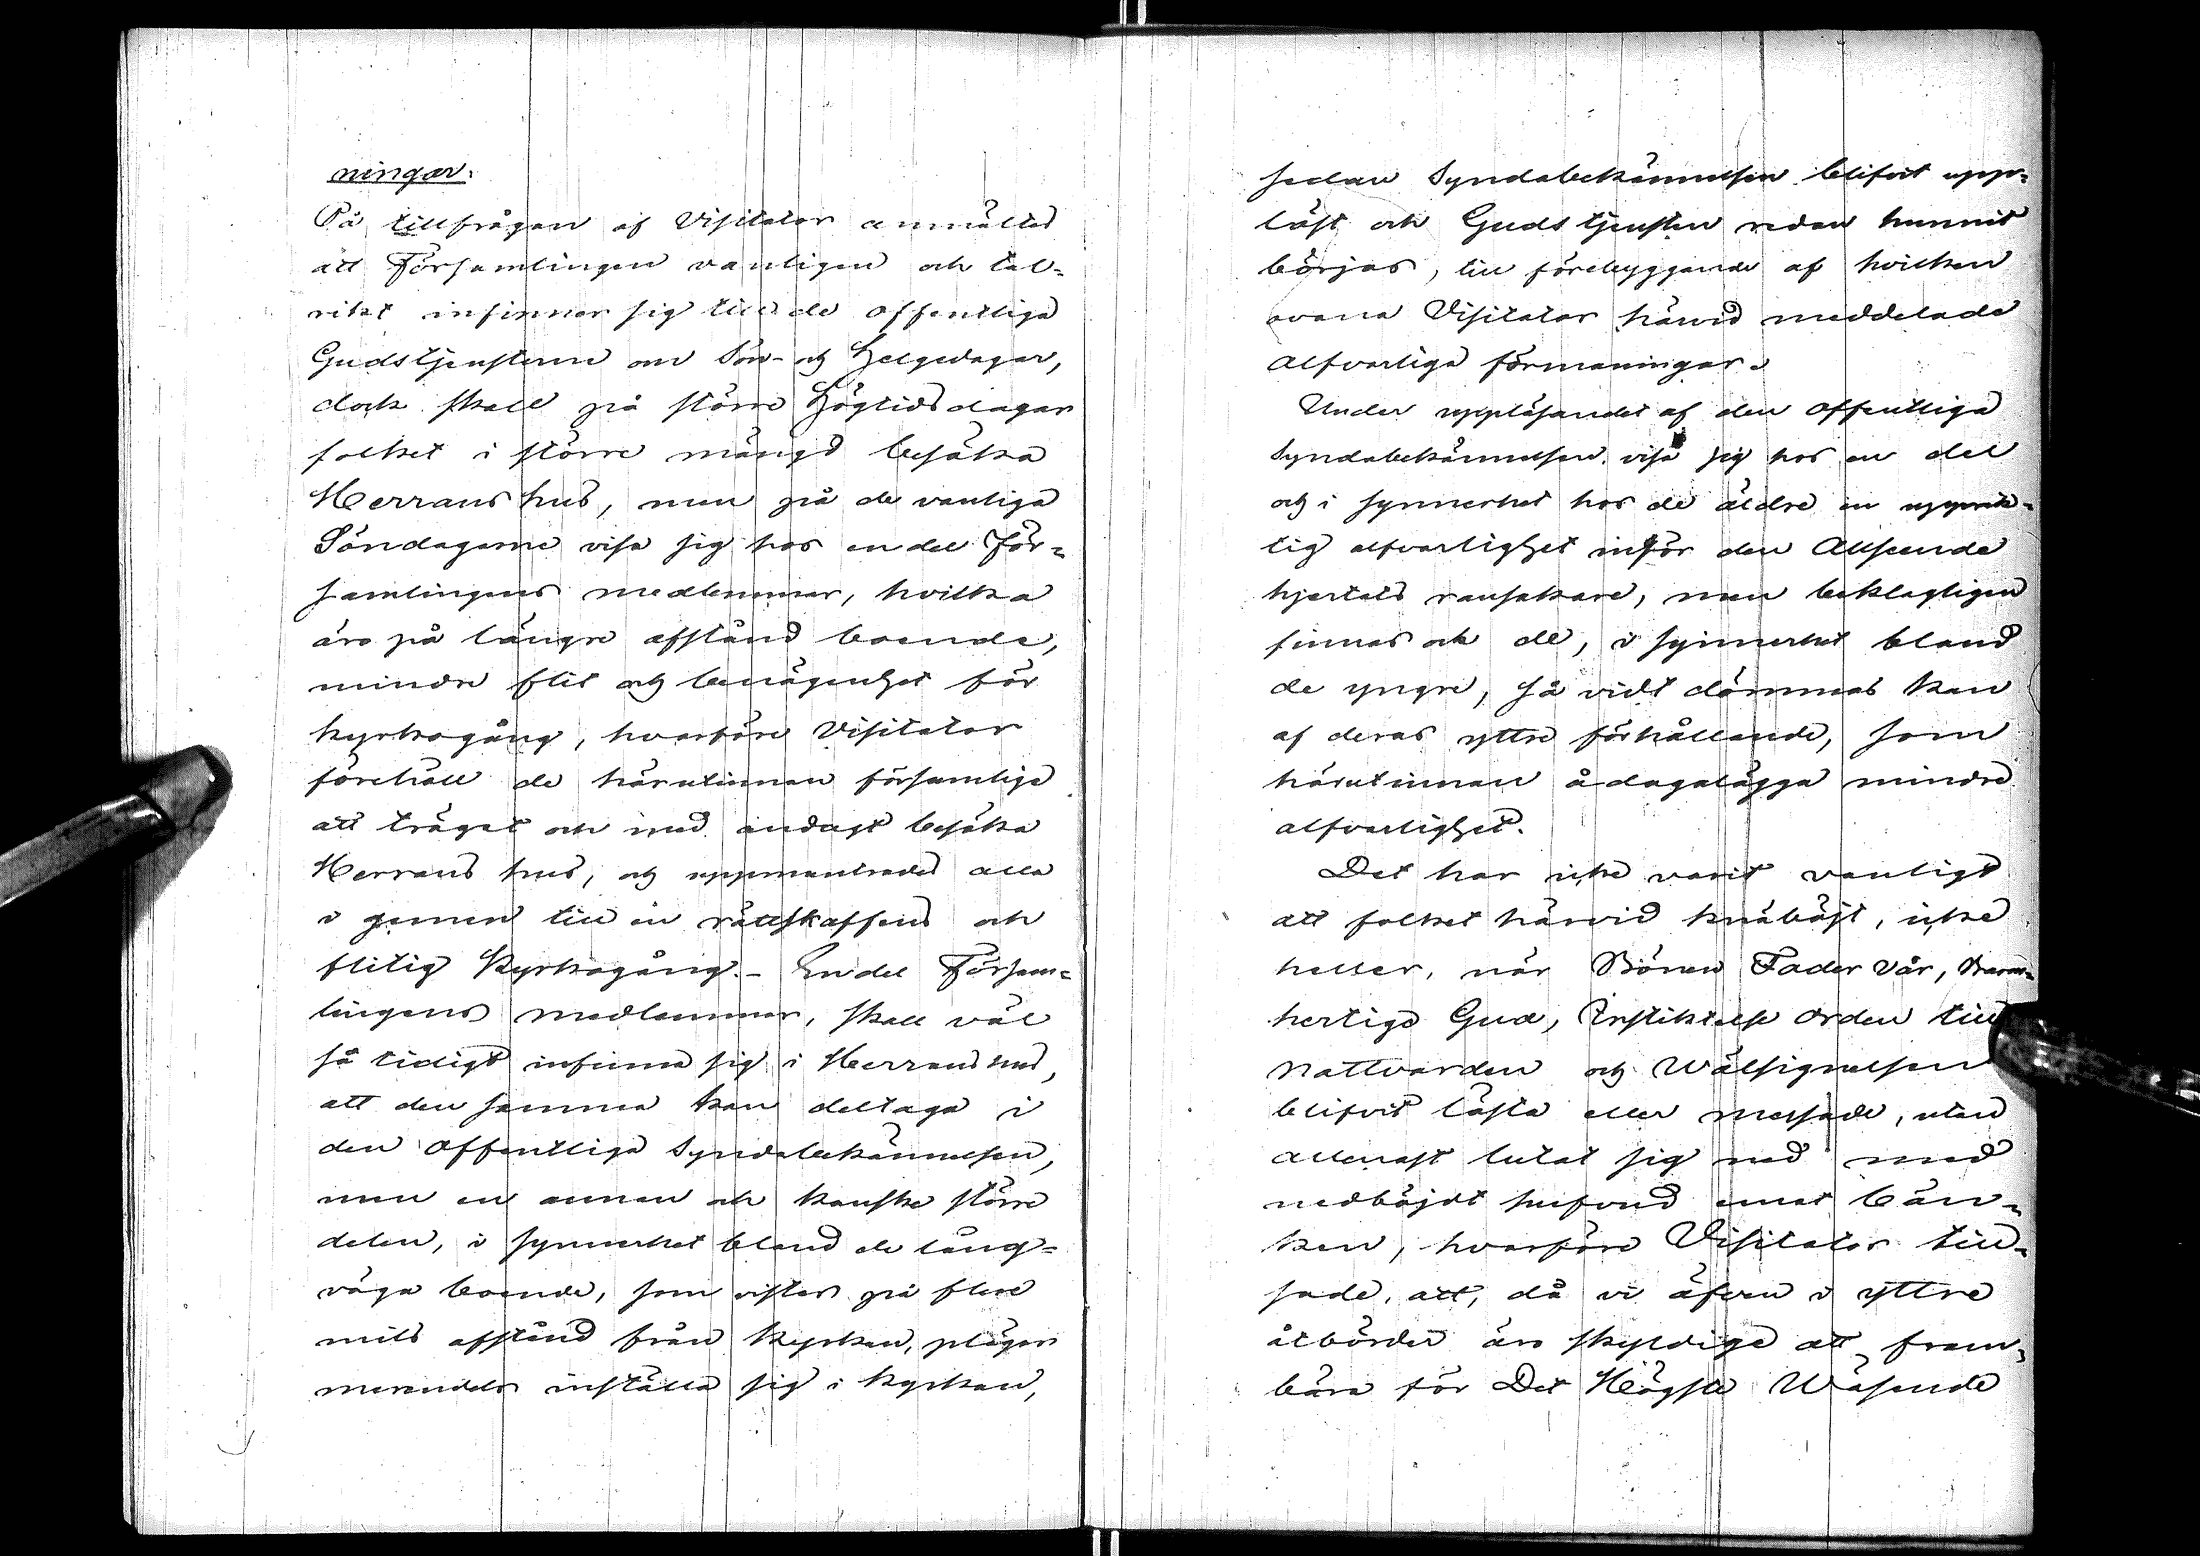 ningar.
På tillfrågan af Visitator anmältes
att Församlingen vanligen och tal-
rikt infinner sig till de offentliga
Gudstjensterne om Sön- och Helgedagar,
dock skall på större Högtidsdagar
folket i större mängd besöka
Herrans hus, men på de vanliga
Söndagarne visa sig hos en del För-
samlingens medlemmar, hvilka
äro på längre afstånd boende,
mindre flit och benägenhet för
kyrkogång, hvarföre Visitator
förehåll de härutinnan försumlige
att träget och med andagt besöka
Herrans hus, och uppmuntrades alla
i gemen till en rättskaffens och
flitig Kyrkogång. – En del Försam-
lingens medlemmar, skall väl
så tidigt infinna sig i Herrans hus,
att den samma kan deltaga i
den offentliga Syndabekännelsen,
men en annan och kanske större
delen, i synnerhet bland de lång-
väga boende, som vistas på flere
mils afstånd från Kyrkan, pläga
merendels inställa sig i Kyrkan,
sedan Syndabekännelsen blifvit upp-
läst och Gudstjensten redan hunnit
börjas, till förebyggande af hvilken
ovana Visitator härvid meddelade
alfvarliga förmaningar.
Under uppläsandet af den offentliga
Syndabekännelsen visa sig hos en del
och i synnerhet hos de äldre en upprik-
tig alfvarlighet inför den Allseende
hjertats ransakare, men beklagligen
finnas och de, i synnerhet bland
de yngre, så vidt dömmas kan
af deras yttre förhållande, som
härutinnan ådagalägga mindre
alfvarlighet.
Det har icke varit vanligt
att folket härvid knäböjt, icke
heller, när Bönen Fader vår, Barm-
hertige Gud, Instiktelse orden till
Nattvarden och Wälsignelsen
blifvit lästa eller messade, utan
allenast lutat sig ned med
nedböjdt hufvud emot bän-
ken, hvarföre Visitator till-
sade, att, då vi äfven i yttre
åtbörder äro skyldige att fram-
bära för Det Högste Wäsende